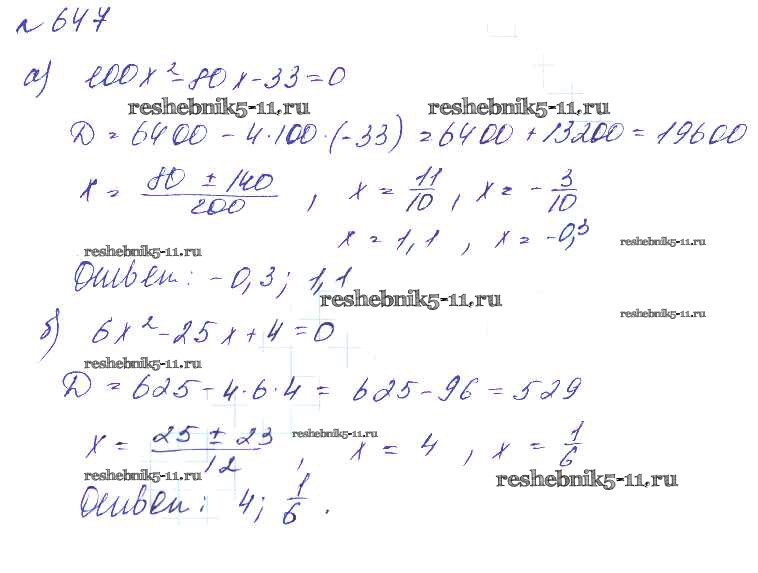 № 647
а) 100x² - 80x - 33 = 0
reshebnik5-11.ru reshebnik5-11.ru
D = 6400 - 4·100·(-33) = 6400 + 13200 = 19600
x = (80 ± 140)/200 , x = 11/10 , x = - 3/10
x = 1,1 , x = -0,3
reshebnik5-11.ru reshebnik5-11.ru
Ответ: -0,3; 1,1
reshebnik5-11.ru
reshebnik5-11.ru
б) 6x² - 25x + 4 = 0
reshebnik5-11.ru
D = 625 - 4·6·4 = 625 - 96 = 529
reshebnik5-11.ru
x = (25 ± 23)/12 , x = 4 , x = 1/6
reshebnik5-11.ru reshebnik5-11.ru
Ответ: 4; 1/6 .